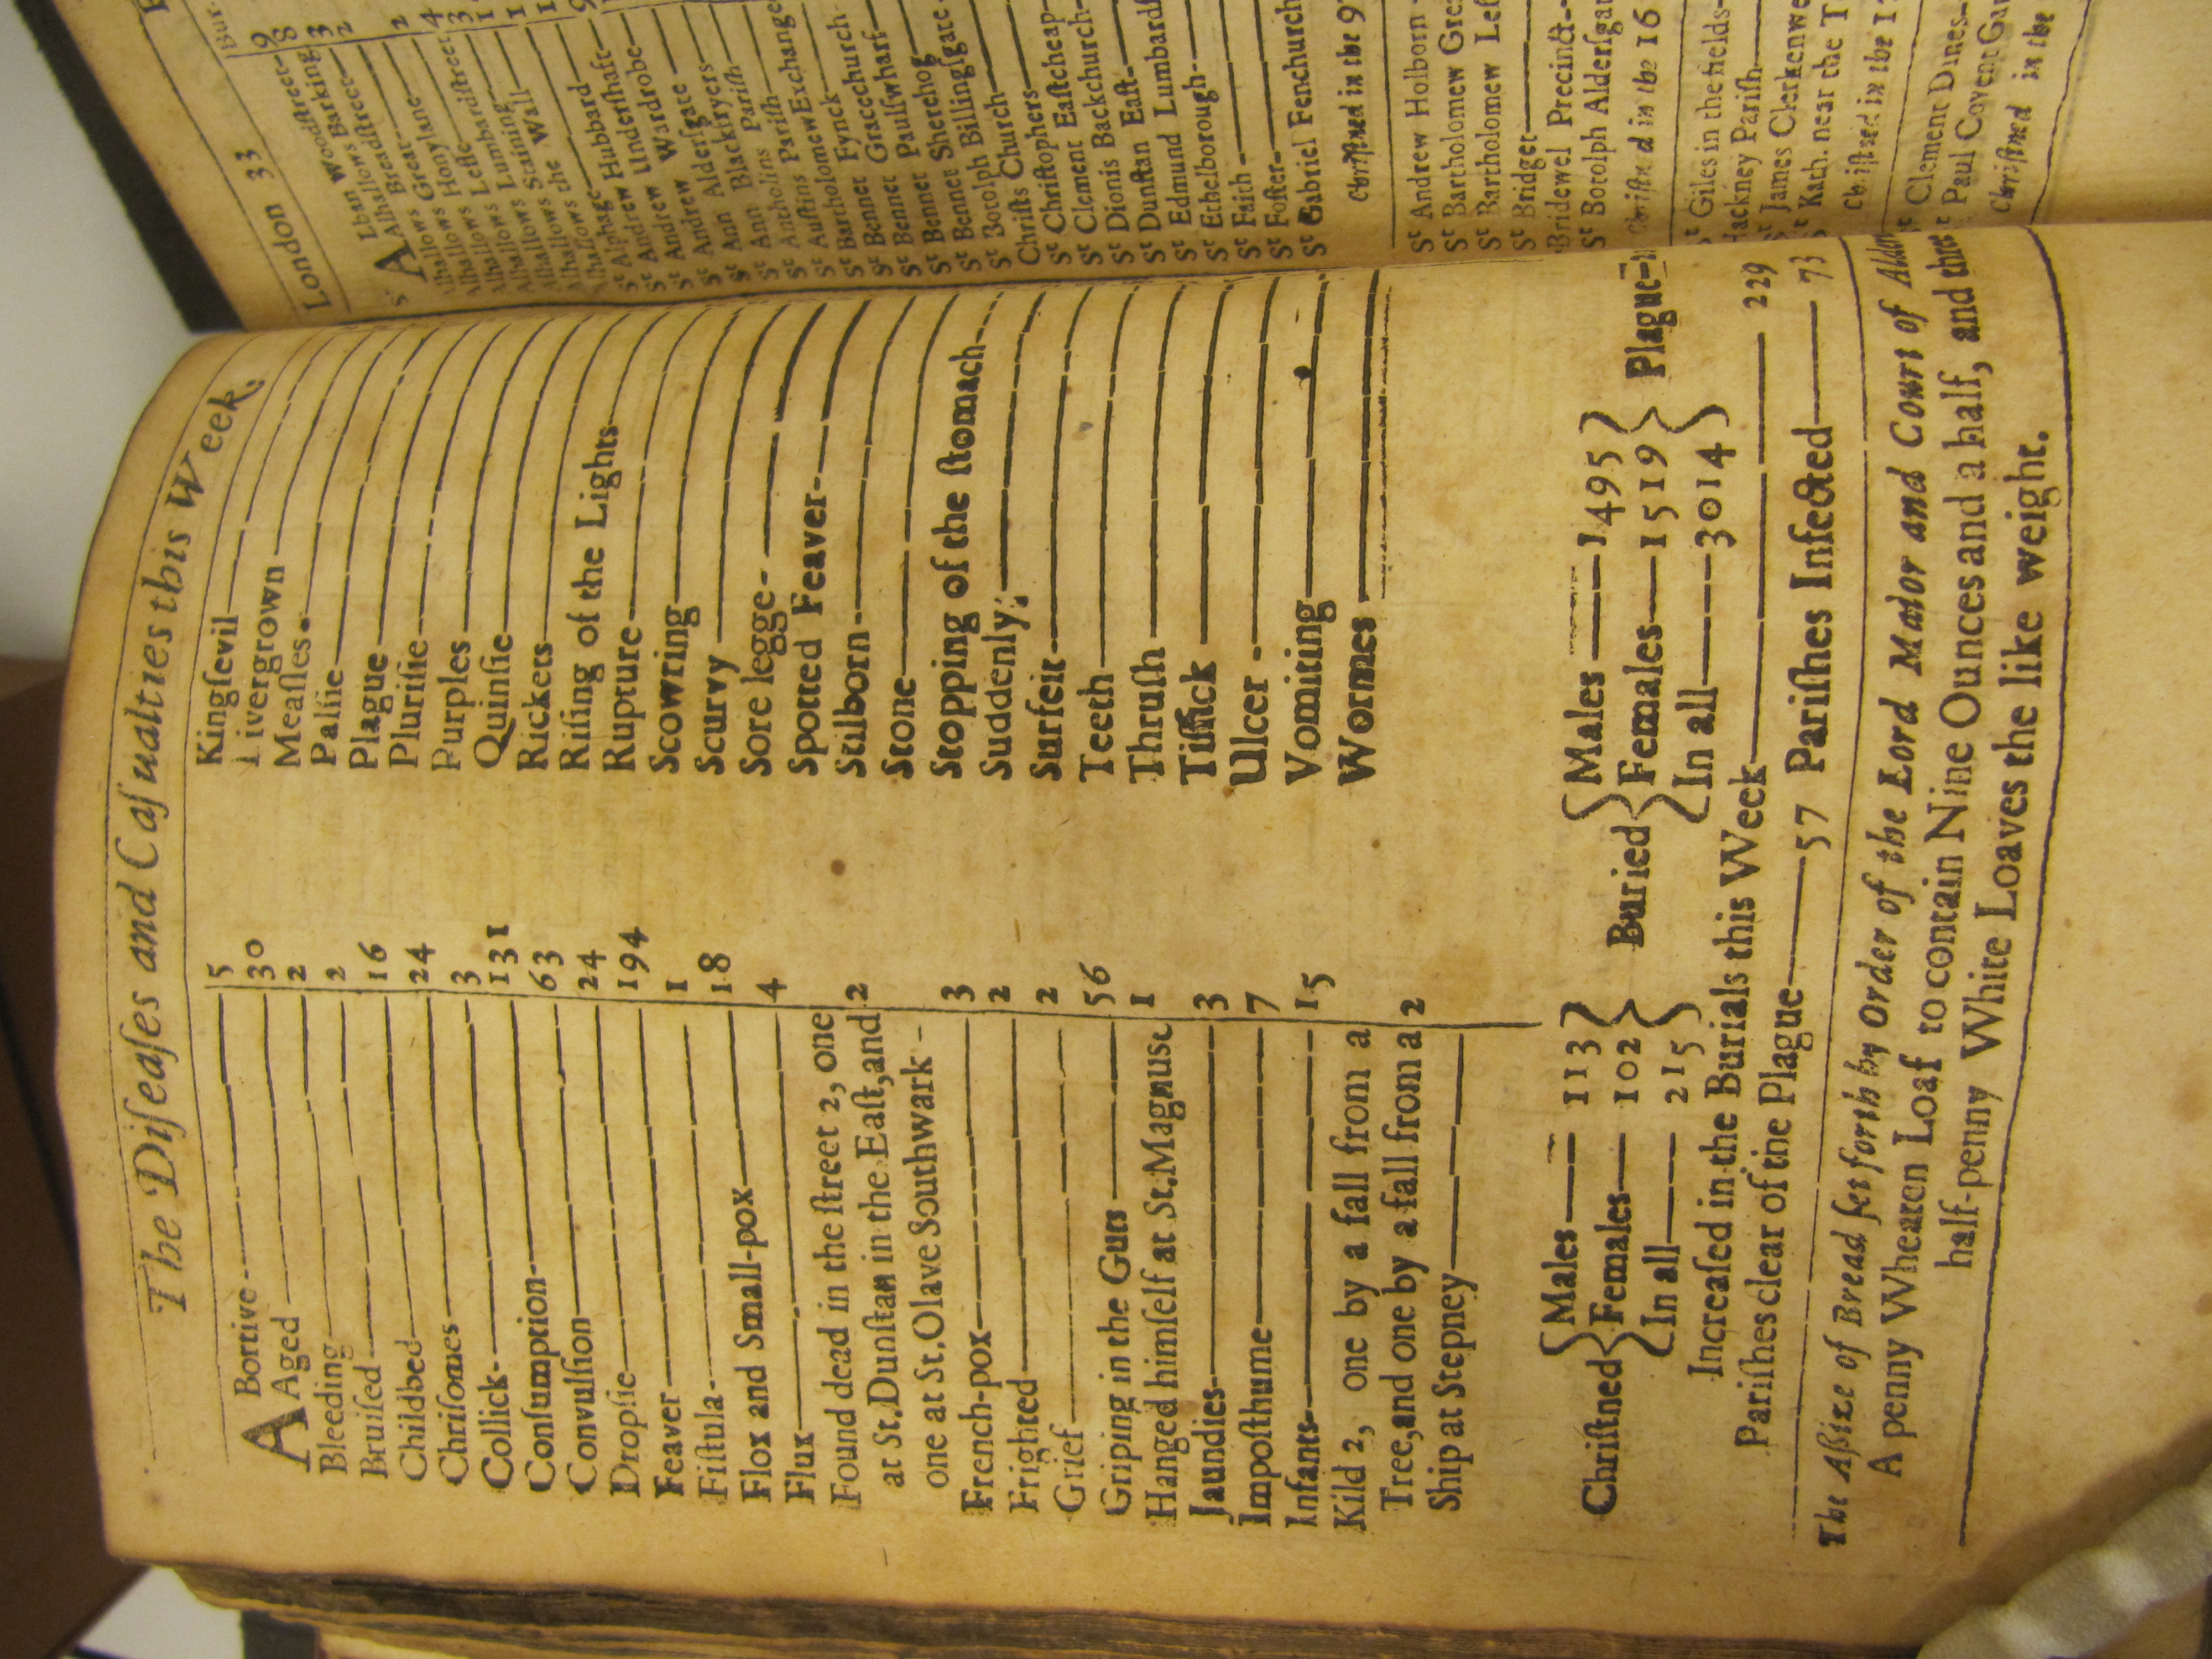 The Diſeaſes and Caſualties this Week.
ABortive 5
Aged 30
Bleeding 2
Bruiſed 2
Childbed 16
Chriſomes 24
Collick 3
Conſumption 131
Convulſion 63
Dropſie 24
Feaver 194
Fiſtula 1
Flox and Small-pox 18
Flux 4
Found dead in the ſtreet 2, one
at St. Dunſtan in the Eaſt, and
one at St. Olave Southwark 2
French-pox 3
Frighted 2
Grief 2
Griping in the Guts 56
Hanged himſelf at St. Magnus 1
Jaundies 3
Impoſthume 7
Infants 15
Kild 2, one by a fall from a
Tree, and one by a fall from a
Ship at Stepney 2
Kingſevil
Livergrown
Meaſles
Palſie
Plague
Pluriſie
Purples
Quinſie
Rickets
Riſing of the Lights
Rupture
Scowring
Scurvy
Sore legge
Spotted Feaver
Stilborn
Stone
Stopping of the ſtomach
Suddenly
Surfeit
Teeth
Thruſh
Tiſſick
Ulcer
Vomiting
Wormes
Chriſtned { Males 113 Females 102 In all 215 }
Buried { Males 1495 Females 1519 In all 3014 } Plague
Increaſed in the Burials this Week 229
Pariſhes clear of the Plague 57 Pariſhes Infected 73
The Aſſize of Bread ſet forth by Order of the Lord Maior and Court of
A penny Wheaten Loaf to contain Nine Ounces and a half, and three
half-penny White Loaves the like weight.
London 33
Bur.
St ALban Woodſtreet 9
Alhallows Barking 8
Alhallows Breadſtreet 3
Alhallows Great 2
Alhallows Honylane
Alhallows Leſſe 2
Alhallows Lumbardſtreet 4
Alhallows Staining 3
Alhallows the Wall 1
St Alphage
St Andrew Hubbard
St Andrew Underſhaft
St Andrew Wardrobe
St Ann Alderſgate
St Ann Blackfryers
St Antholins Pariſh
St Auſtins Pariſh
St Bartholomew Exchange
St Bennet Fynck
St Bennet Gracechurch
St Bennet Paulſwharf
St Bennet Sherehog
St Botolph Billingſgate
Chriſts Church
St Chriſtophers
St Clement Eaſtcheap
St Dionis Backchurch
St Dunſtan Eaſt
St Edmund Lumbardſ
St Ethelborough
St Faith
St Foſter
St Gabriel Fenchurch
Chriſtned in the 97
St Andrew Holborn
St Bartholomew Gre
St Bartholomew Leſ
St Bridget
Bridewel Precinct
St Botolph Alderſga
Chriſtned in the 16
St Giles in the fields
Hackney Pariſh
St James Clerkenwe
St Kath. near the T
Chriſtned in the 1
St Clement Danes
St Paul Covent Ga
Chriſtned in the